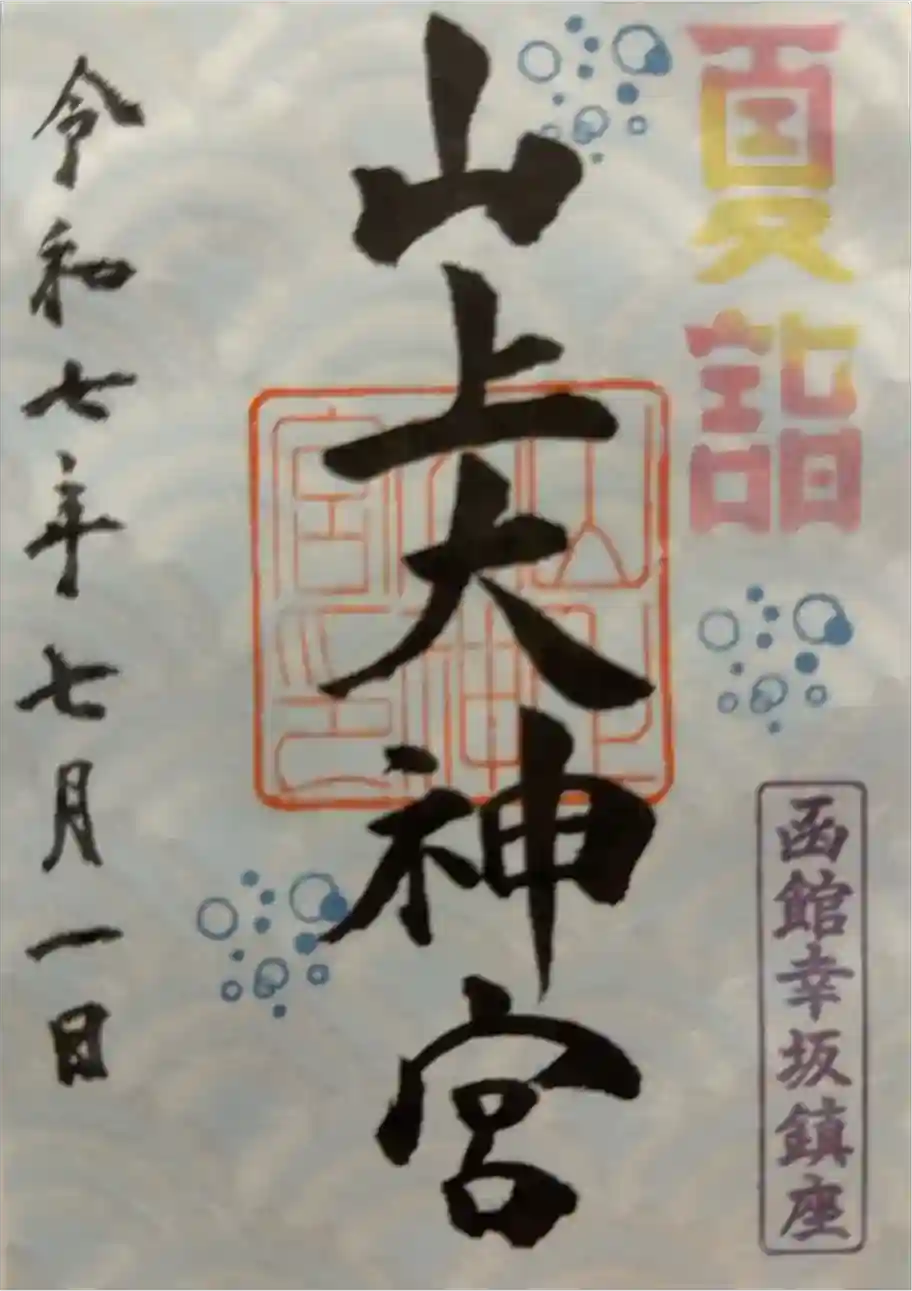 夏詣
函館幸坂鎮座
山上大神宮
山上大神宮印
令和七年七月一日